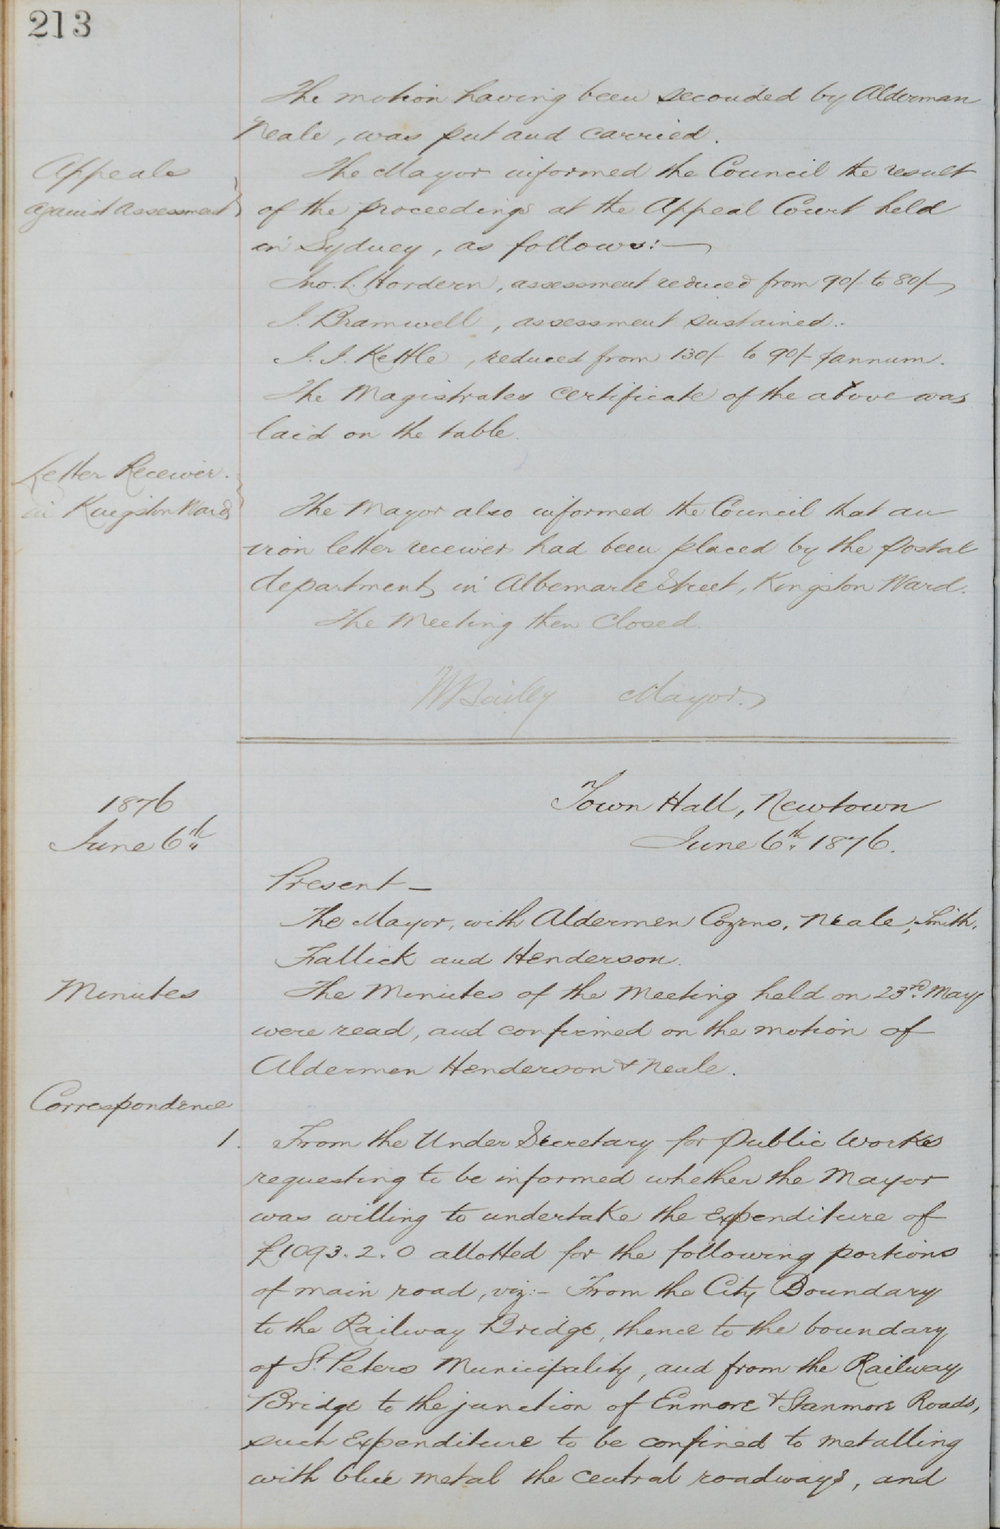 213
The motion having been seconded by Alderman
Neale, was put and carried.
Appeals
against Assessment
The Mayor informed the Council the result
of the proceedings at the Appeal Court held
in Sydney, as follows:—
Jno. L. Hordern, assessment reduced from 90/- to 80/-
J. Bramwell, assessment sustained.
J. J. Kettle, reduced from 130/- to 90/- p annum.
The Magistrates certificate of the above was
laid on the table.
Letter Receiver
in Kingston Ward
The Mayor also informed the Council that an
iron letter receiver had been placed by the Postal
department, in Albemarle Street, Kingston Ward.
The Meeting then Closed.
W Bailey Mayor.
1876
June 6th.
Town Hall, Newtown
June 6th. 1876.
Present —
The Mayor, with Aldermen Cozens, Neale, Smith,
Fallick and Henderson.
Minutes
The Minutes of the Meeting held on 23rd. May
were read, and confirmed on the motion of
Aldermen Henderson & Neale.
Correspondence
1. From the Under Secretary for Public Works
requesting to be informed whether the Mayor
was willing to undertake the Expenditure of
£1093.2.0 allotted for the following portions
of main road, viz:- From the City Boundary
to the Railway Bridge, thence to the boundary
of St Peters Municipality, and from the Railway
Bridge to the junction of Enmore & Stanmore Roads,
such Expenditure to be confined to metalling
with blue metal the central roadways, and